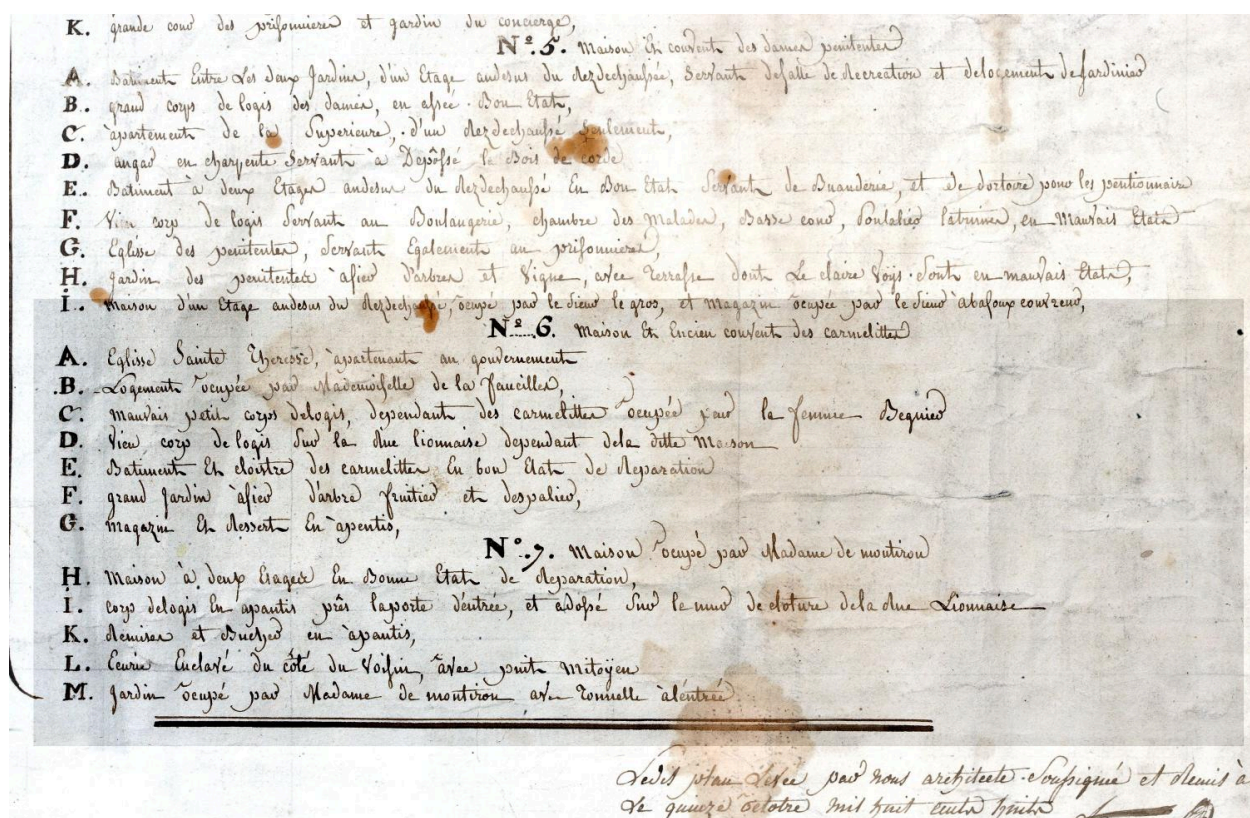 K. grande cour des prisonnieres et jardin du concierge,
Nº. 5. Maison Et couvent des dames penitentes
A. Batiment Entre Les deux Jardins, d'un Etage audesus du Rezdechaussée, Servant desalle de Recreation et delogement de Jardinier
B. grand corps de logis des dames, en assée Bon Etat,
C. apartement de la Superieure, d'un Rezdechaussé seulement,
D. angar en charpente Servant à Dépôssé le Bois de corde
E. Batiment à deux Etages audesus du Rezdechaussé En Bon Etat Servant de Buanderie, et de dortoire pour les pentionnaire
F. Vieu corp de logis Servant au Boulangerie, chambre des Malades, Basse cour, Poulalier latrinnes, en Mauvais Etats
G. Eglise des penitentes, Servant Egalement au prisonnieres,
H. Jardin des penitentes afier d'arbres et Vigne, avec Terrasse dont Le claire Voys Sont en mauvais Etats,
I. Maison d'un Etage audesus du Rezdechaussé, ocupé par le Sieur le gros, et Magazin ocupée par le Sieur abafoux couvreur,
Nº. 6. Maison Et Encien couvent des carmelittes
A. Eglise Sainte Theresse, apartenant au gouvernement
B. Logement ocupée par Mademoiselle de la Faucilles,
C. Mauvais petit corps delogis, dependant des carmelittes ocupée par la femme Begnier
D. Vieu corp de logis Sur la Rue lionnaise dependant dela ditte Maison
E. Batiment Et cloistre des carmelittes En bon Etat de Reparation
F. grand Jardin afier d'arbre fruitier et despalier,
G. Magazin Et Ressert En apentis,
Nº. 7. Maison ocupé par Madame de montiron
H. Maison à deux Etages En Bonne Etat de Reparation,
I. corp delogis En apantis près laporte d'entrée, et adossé Sur le mur de cloture dela Rue Lionnaise
K. Remises et Bucher en apantis,
L. Ecurie Enclavé du côté du Voisin, avec puit Mitoÿen
M. Jardin ocupé par Madame de montiron avec Tonnelle aléntrée.
Ledit plan Levée par nous architecte Soussignié et Remis à
Le quinze octobre mil huit cents huits